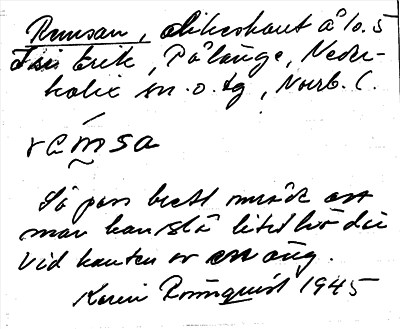 Rumsan, dikeskant å 10.5
Erik, Pålänge, Neder-
kalix sn. o. tg, Norrb. l.
råmsa
Så pass brett område att
man kan slå litet hö där
vid kanten av en äng.
Karin Rönnquist 1945